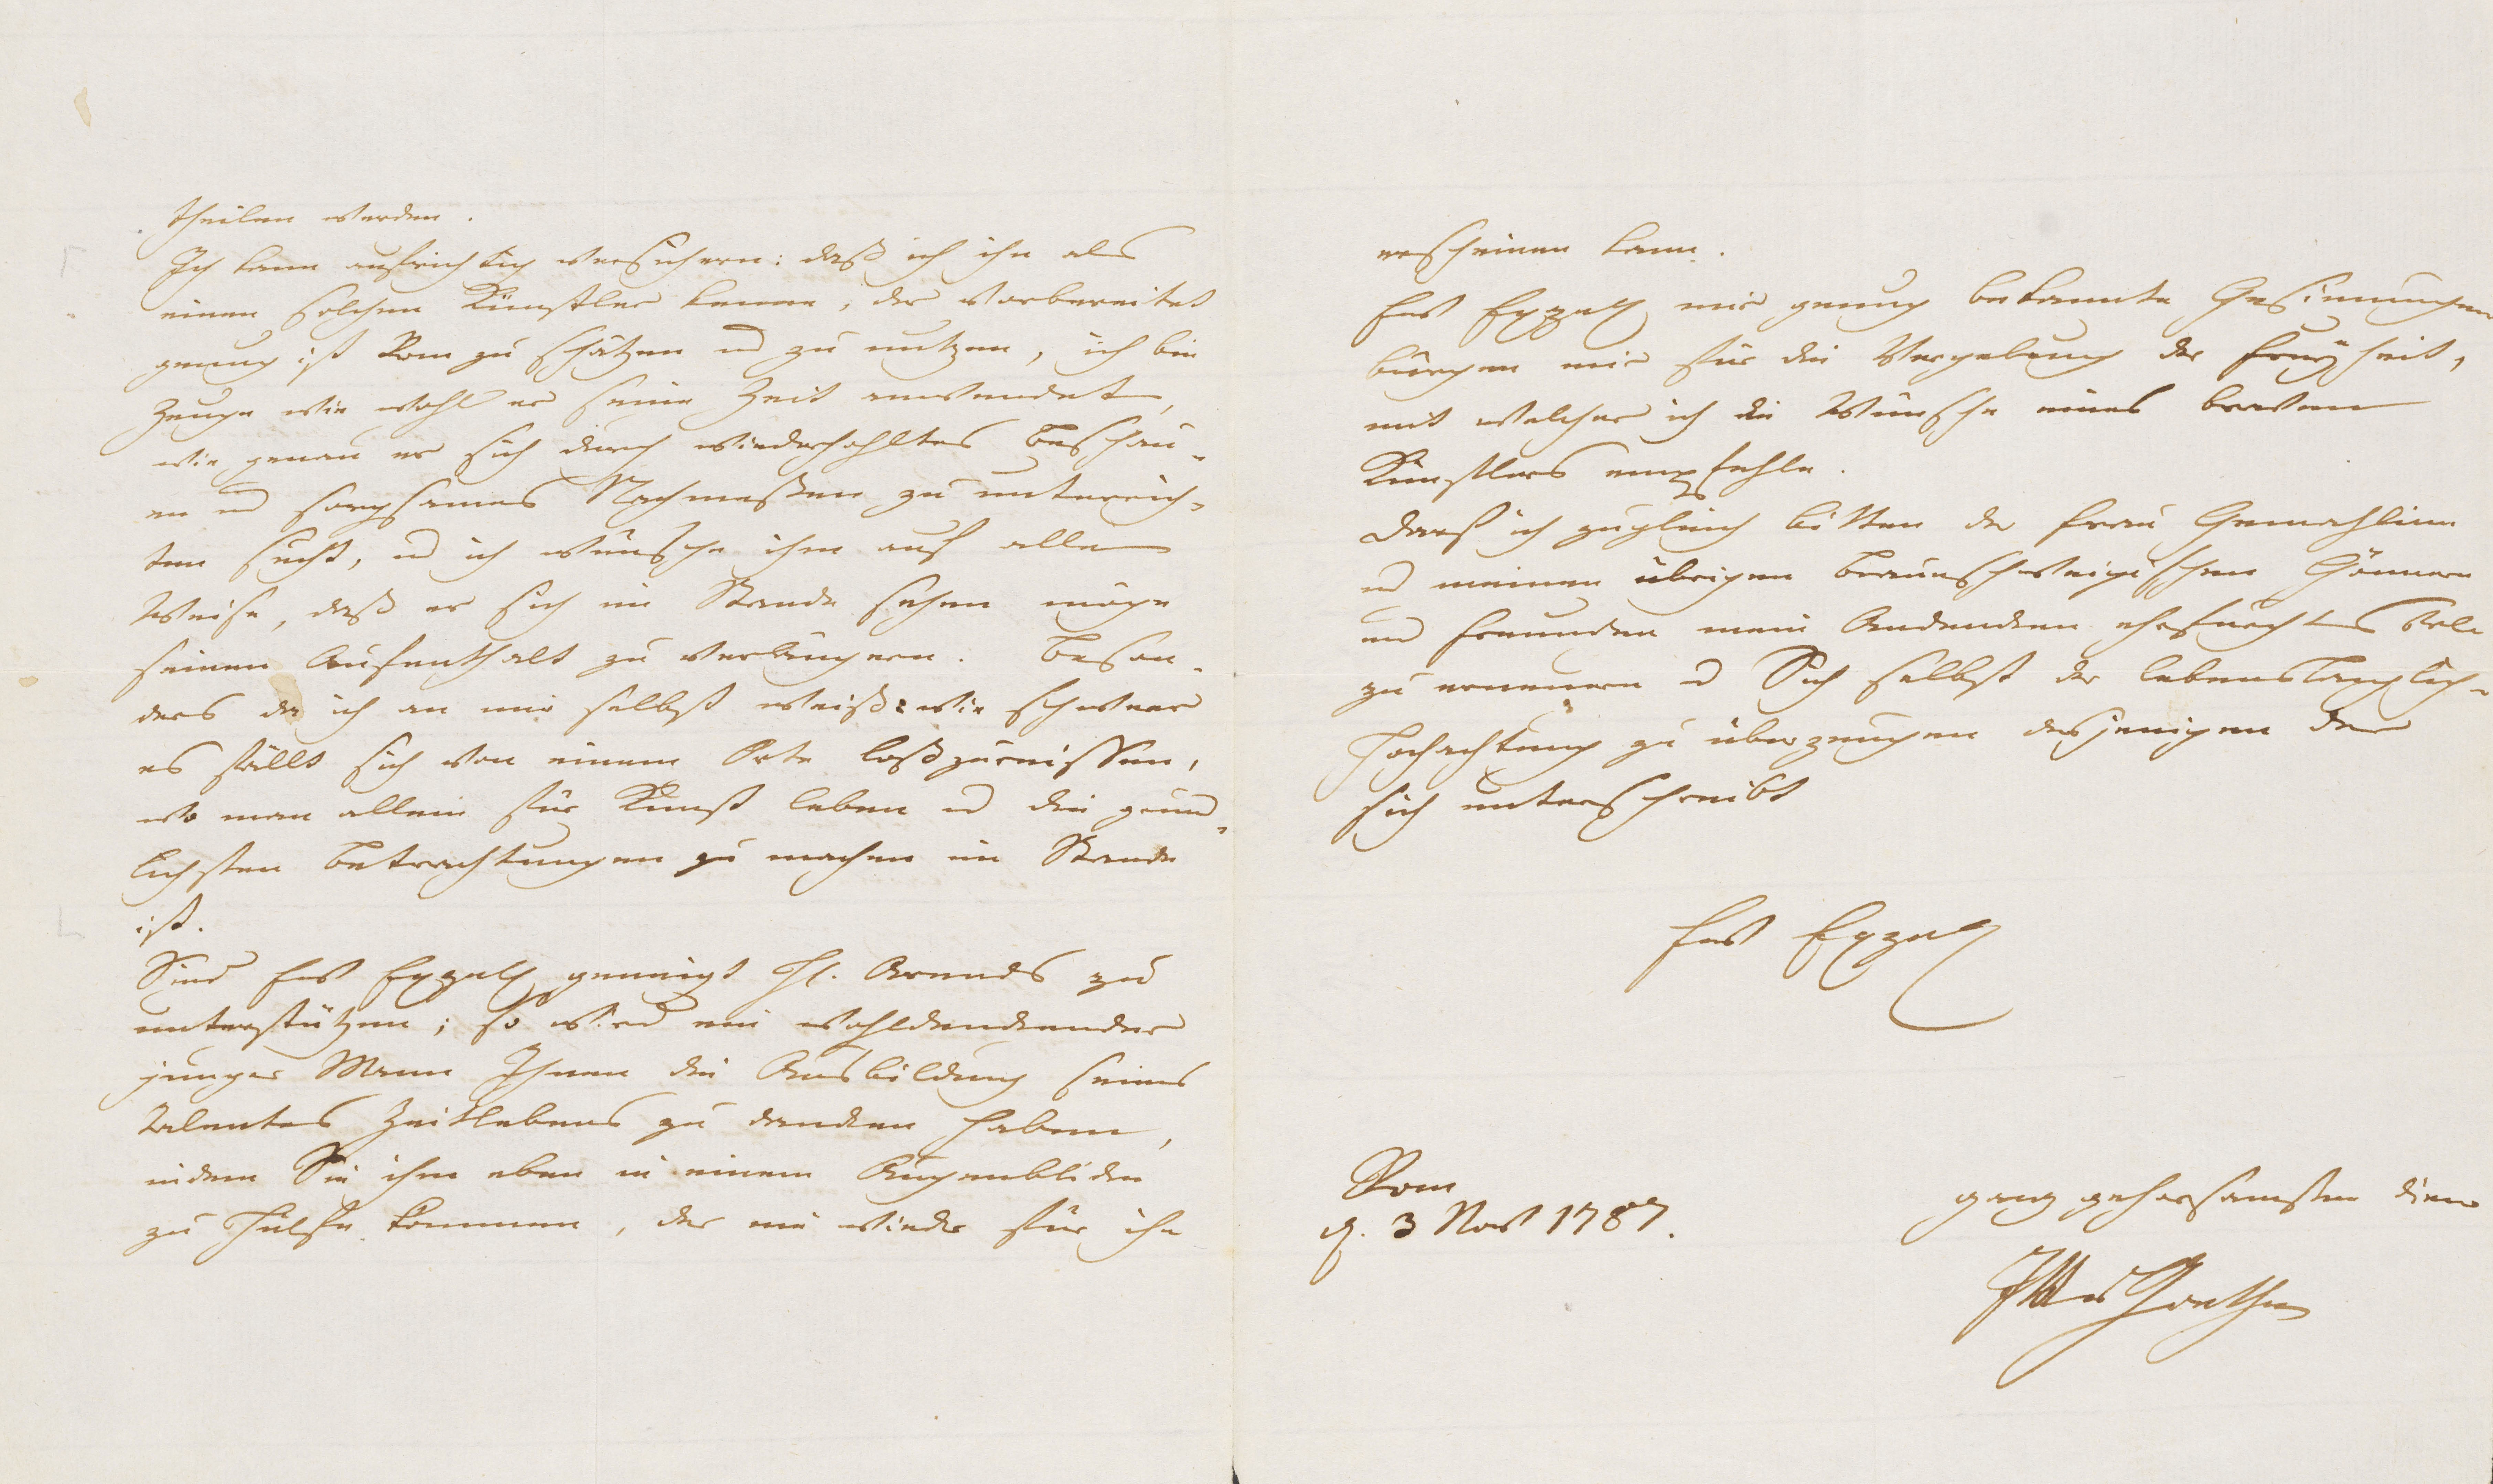 theilen werden.
Ich kann aufrichtig versichern: daß ich ihn als
einen solchen Künstler kenne, der vorbereitet
genug ist Rom zu schätzen und zu nutzen, ich bin
Zeuge wie wohl er seine Zeit anwendet,
wie genau er sich durch wiederhohltes Beschau-
en und sorgsames Nachmeßen zu unterrich-
ten sucht, und ich wünsche ihm auf alle
Weise, daß er sich im Stande sehen möge
seinen Aufenthalt zu verlängern. Beson-
ders da ich an mir selbst weiß: wie schweer
es fällt sich von einem Orte loßzureissen,
wo man allein für Kunst leben und die gründ-
lichsten Betrachtungen zu machen im Stande
ist.
Sind Ew Exzell geneigt H. Arends zu
unterstützen; so wird ein wohldenckender
junger Mann Ihnen die Ausbildung seines
Talentes Zeitlebens zu dancken haben,
indem Sie ihm eben in einem Augenblicke
zu Hülfe kommen, der nie wieder für ihn
erscheinen kann.
Ew Exzell mir genug bekannte Gesinnungen
bürgen mir für die Vergebung der Freyheit,
mit welcher ich die Wünsche eines braven
Künstlers empfehle.
Darf ich zugleich bitten der Frau Gemahlinn
und meinen übrigen Braunschweigischen Gönnern
und Freunden mein Andencken ehrfurchts voll
zu erneuern und Sich selbst der lebenslänglich-
Hochachtung zu überzeugen desjenigen der
sich unterschreibt
Ew Exzell
Rom
d. 3 Nov 1787.
ganz gehorsamster Diener
JWv Goethe